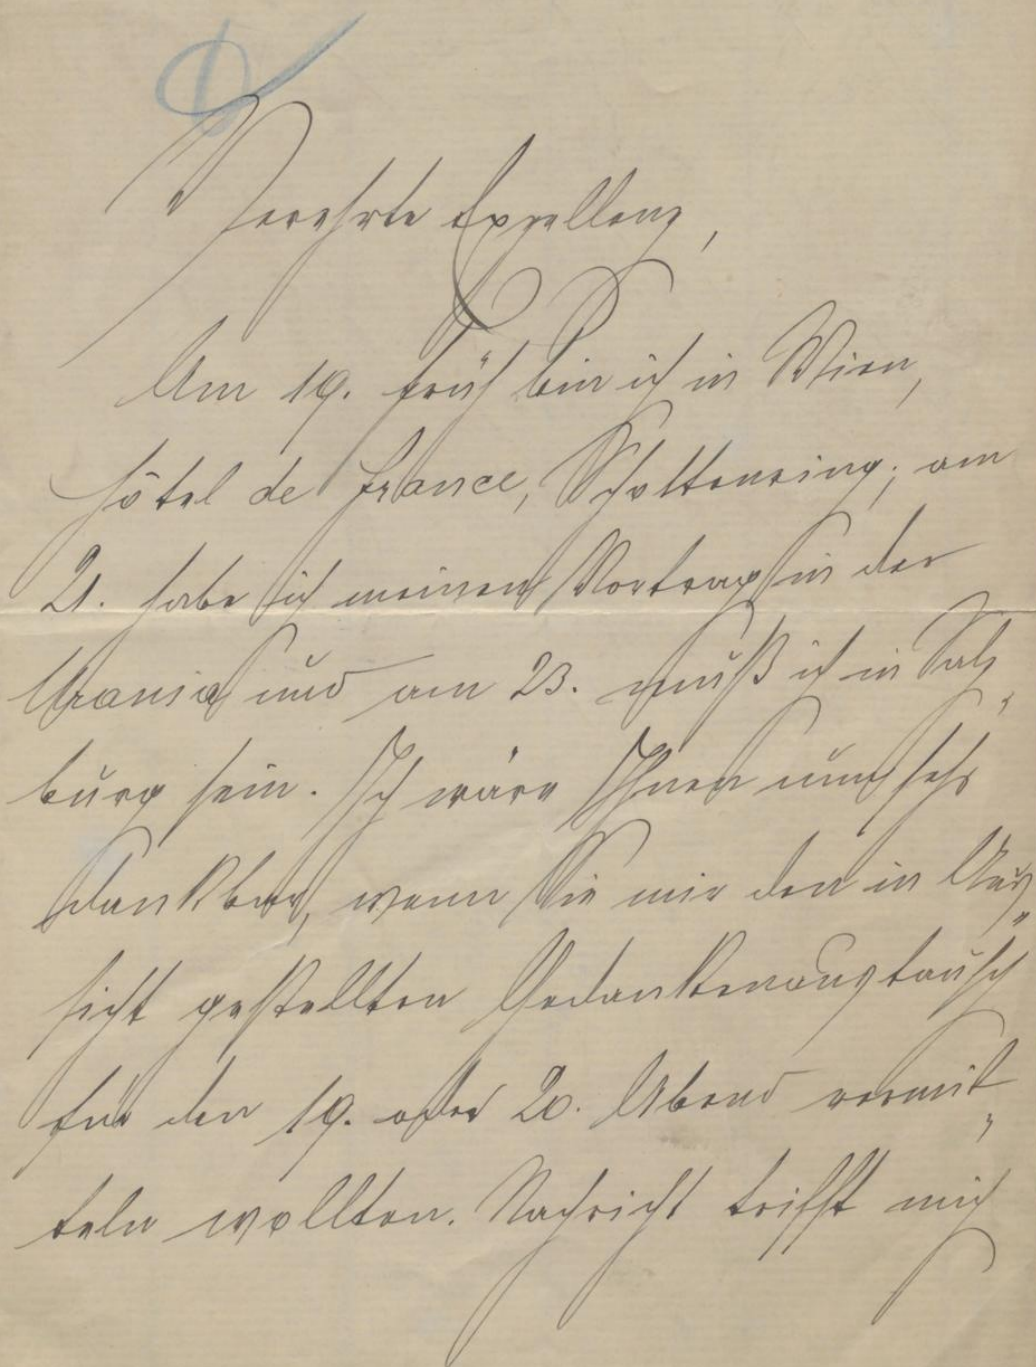 Verehrte Exzellenz,
Am 19. früh bin ich in Wien,
Hôtel de France, Schottenring; am
21. habe ich meinen Vortrag in der
Urania und am 23. muß ich in Salz„
burg sein. Ich wäre Ihnen nun sehr
dankbar, wenn Sie mir den in Aus„
sicht gestellten Gedankenaustausch
für den 19. oder 20. Abend vermit„
teln wollten. Nachricht trifft mich